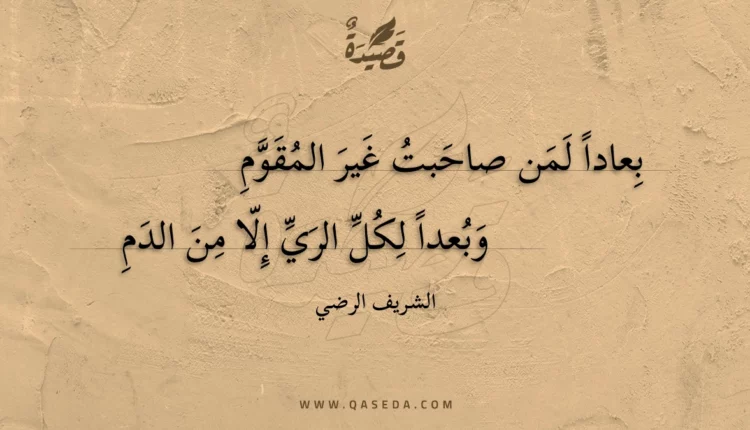 قَصِيدَةٌ
بِعاداً لَمَن صاحَبتُ غَيرَ المُقَوَّمِ
وَبُعداً لِكُلِّ الرَيِّ إِلّا مِنَ الدَمِ
الشريف الرضي
WWW.QASEDA.COM